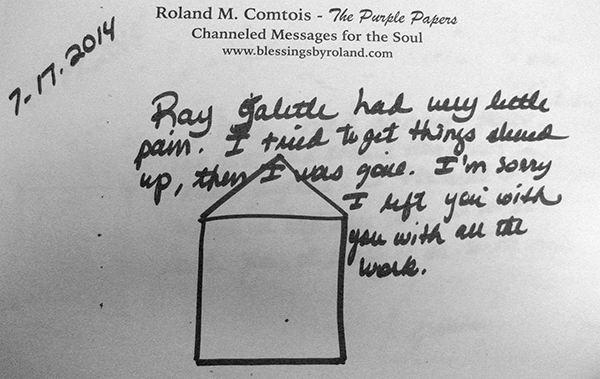 Roland M. Comtois - The Purple Papers
Channeled Messages for the Soul
www.blessingsbyroland.com
7.17.2014
Ray had very little
pain. I tried to get things
up, then I was gone. I'm sorry
I left you with
you with all the
work.